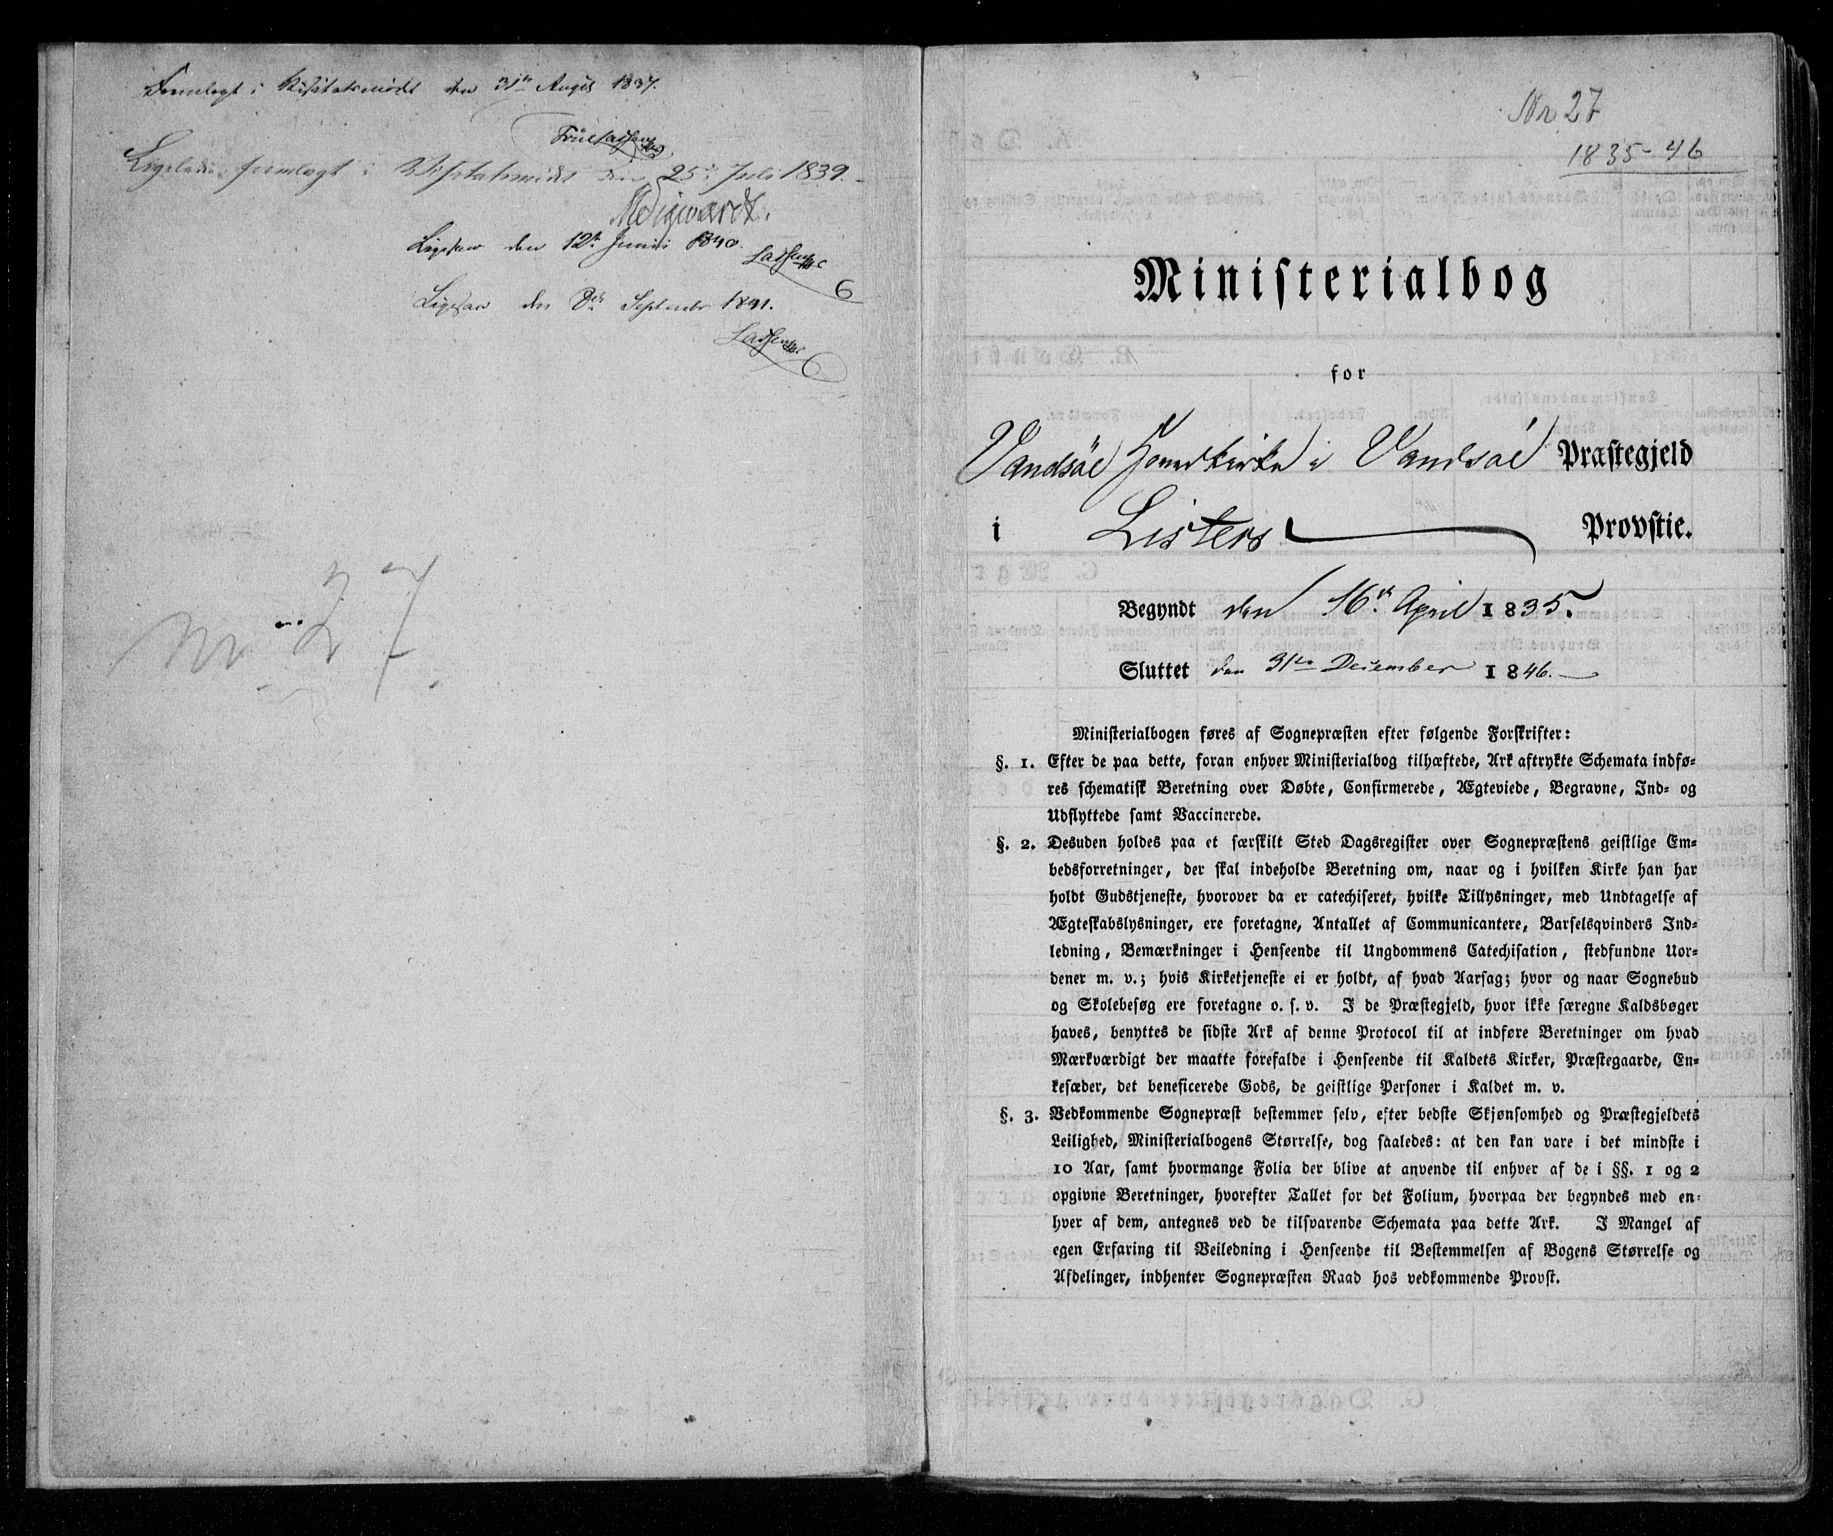 Fremlagt i Visitatsmødet den 31te Augst 1837.
Ligeledes fremlagt i Visitatsmødet den 25de Juli 1839.
Ligesaa den 12te Junii 1840.
Ligesaa den 8de September 1841.
Nr 27
Nr 27
1835-46
Ministerialbog
for
Vandsöe Hovedkirke i Vandsöe Præstegjeld
i Listers Provstie.
Begyndt den 16de April 1835.
Sluttet den 31te December 1846.
Ministerialbogen føres af Sognepræsten efter følgende Forskrifter:
§. 1. Efter de paa dette, foran enhver Ministerialbog tilhæftede, Ark aftrykte Schemata indfø-
res schematisk Beretning over Døbte, Confirmerede, Ægteviede, Begravne, Ind- og
Udflyttede samt Vaccinerede.
§. 2. Desuden holdes paa et særskilt Sted Dagsregister over Sognepræstens geistlige Em-
bedsforretninger, der skal indeholde Beretning om, naar og i hvilken Kirke han har
holdt Gudstjeneste, hvorover da er catechiseret, hvilke Tillysninger, med Undtagelse af
Ægteskabslysninger, ere foretagne, Antallet af Communicantere, Barselqvinders Ind-
ledning, Bemærkninger i Henseende til Ungdommens Catechisation, stedfundne Uor-
dener m. v.; hvis Kirketjeneste ei er holdt, af hvad Aarsag; hvor og naar Sognebud
og Skolebesøg ere foretagne o. s. v. I de Præstegjeld, hvor ikke særegne Kaldsbøger
haves, benyttes de sidste Ark af denne Protocol til at indføre Beretninger om hvad
Mærkværdigt der maatte forefalde i Henseende til Kaldets Kirker, Præstegaarde, En-
kesæder, det beneficerede Gods, de geistlige Personer i Kaldet m. v.
§. 3. Vedkommende Sognepræst bestemmer selv, efter bedste Skjønsomhed og Præstegjeldets
Leilighed, Ministerialbogens Størrelse, dog saaledes: at den kan vare i det mindste i
10 Aar, samt hvormange Folia der blive at anvende til enhver af de i §§. 1 og 2
opgivne Beretninger, hvorefter Tallet for det Folium, hvorpaa der begyndes med en-
hver af dem, antegnes ved de tilsvarende Schemata paa dette Ark. I Mangel af
egen Erfaring til Veiledning i Henseende til Bestemmelsen af Bogens Størrelse og
Afdelinger, indhenter Sognepræsten Raad hos vedkommende Provst.